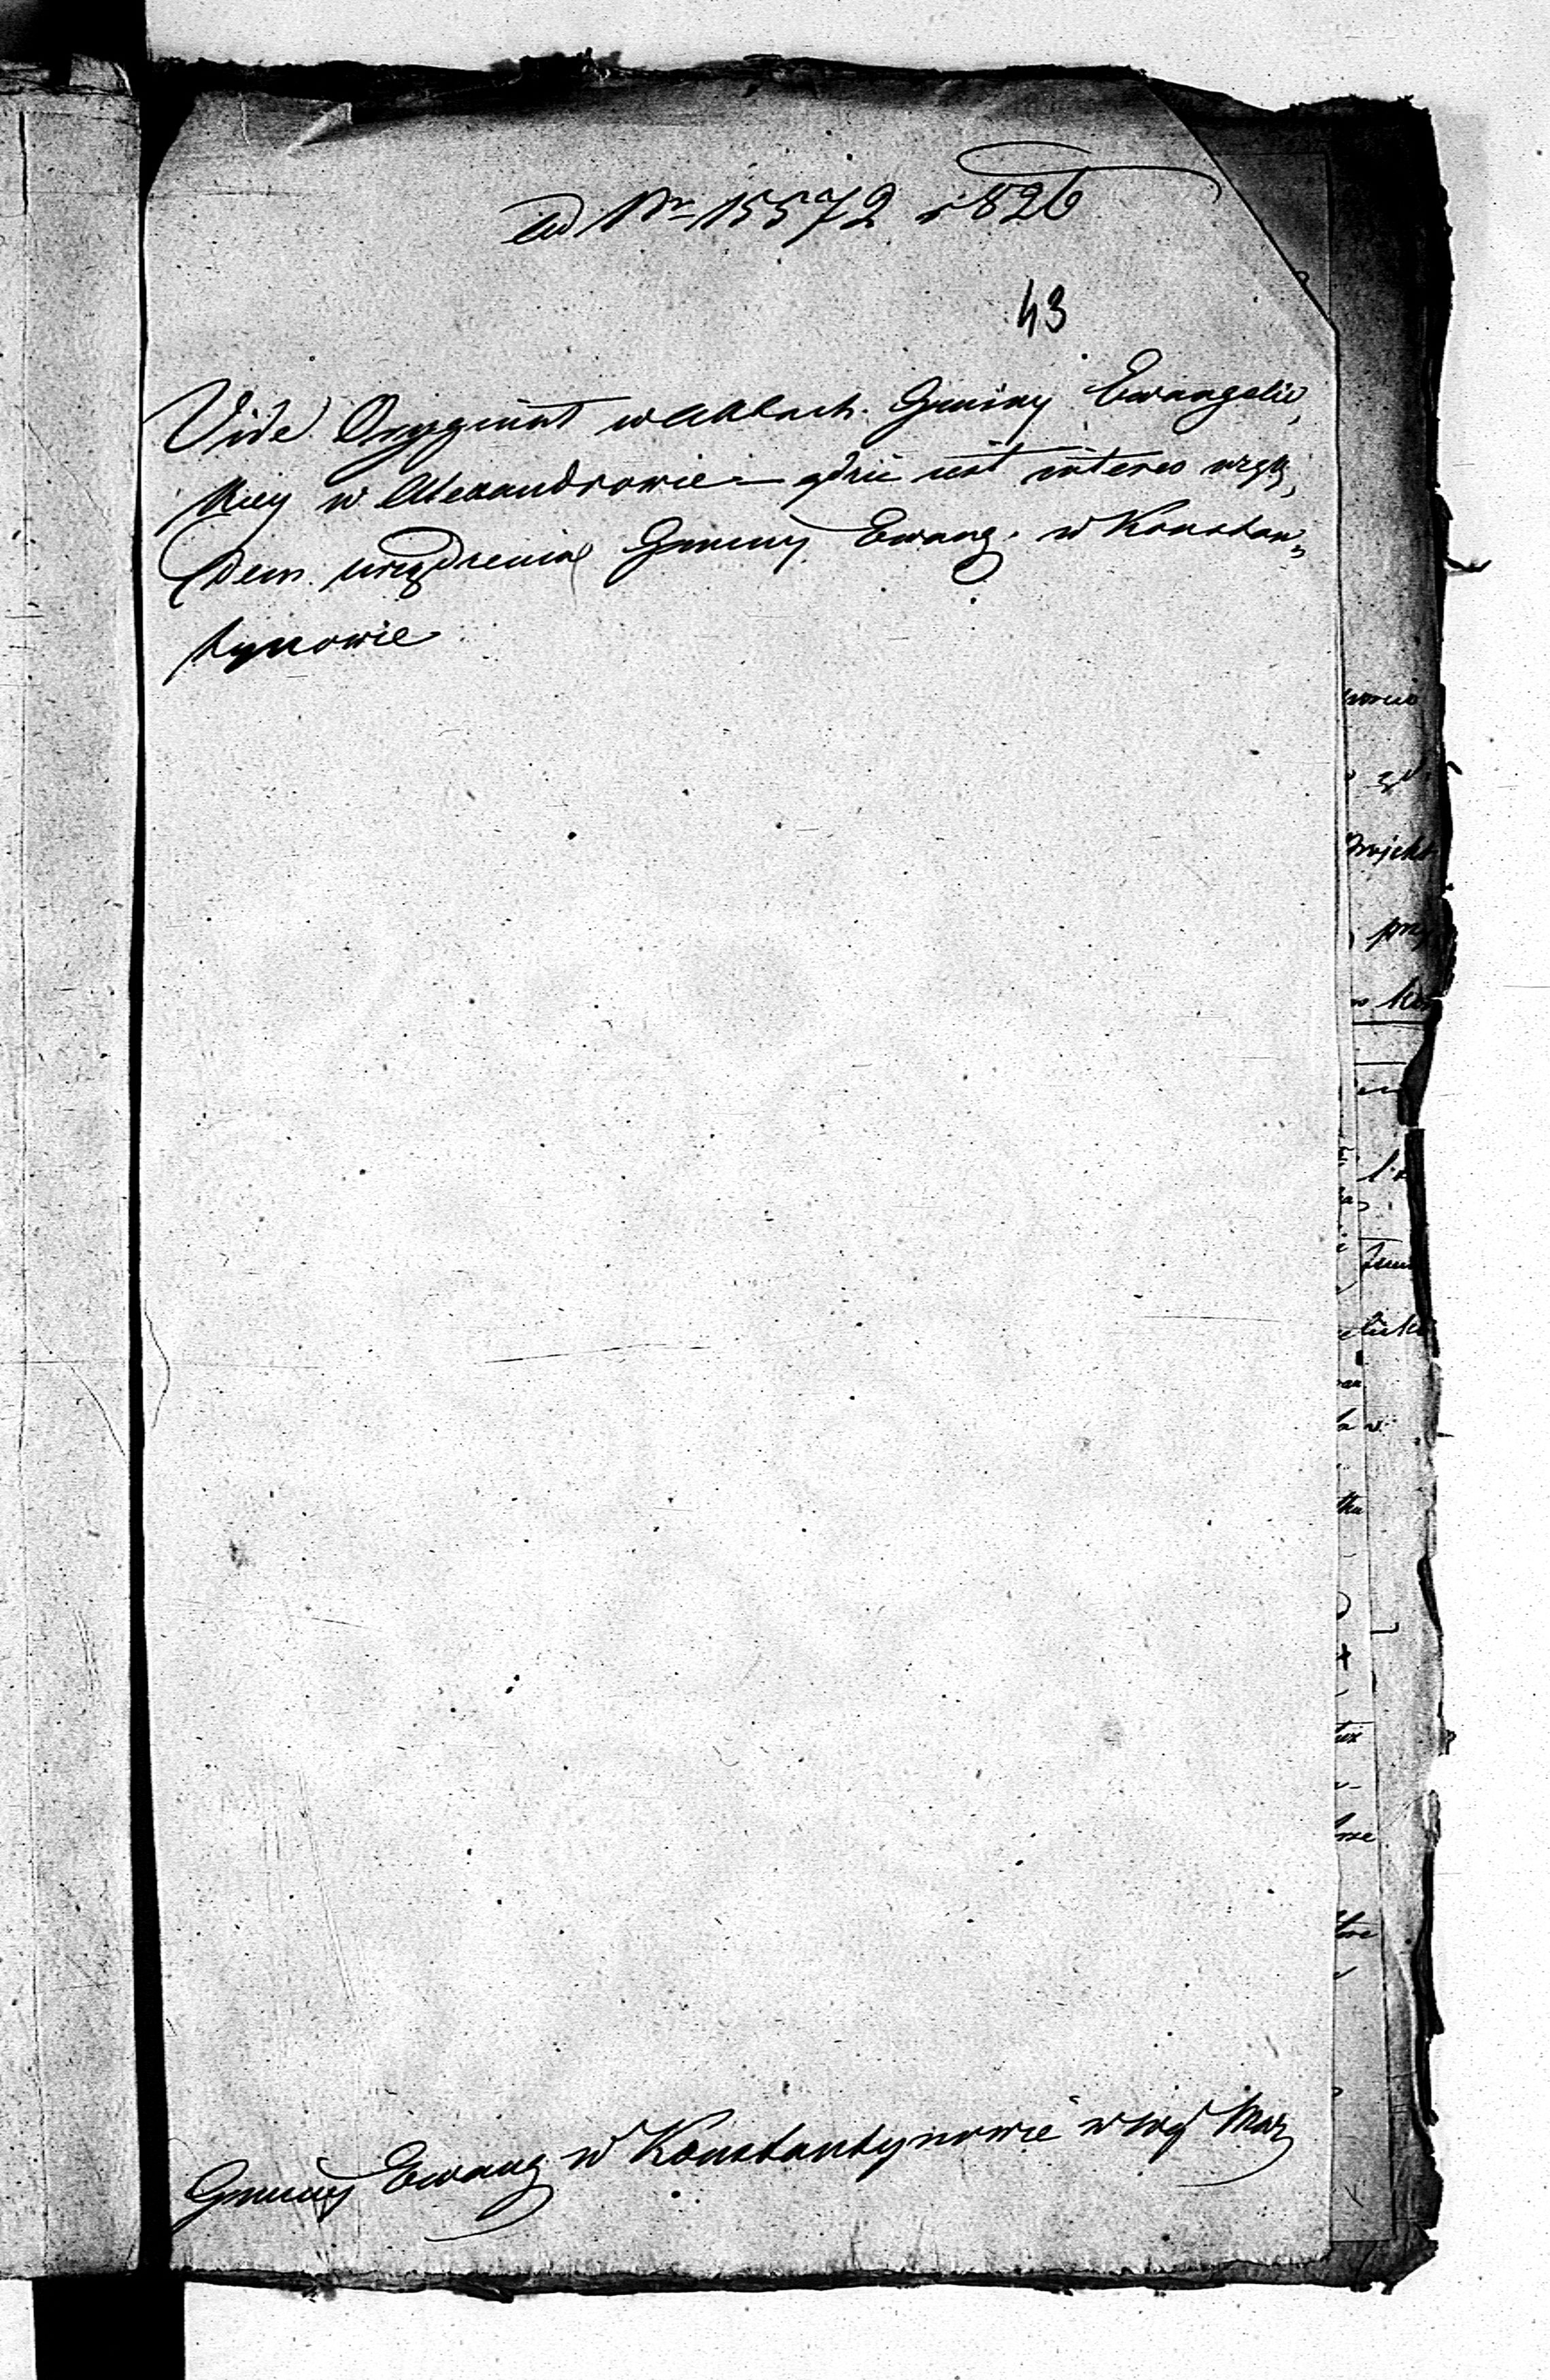 ad Nr 15572 1826
43
Vide Oryginał w Aktach Gminy Ewangelic,
kiey w Alexandrowie – gdzie iest interes wzglę,
dem urządzenia Gminy Ewang. w Konstan=
tynowie
Gminy Ewang w Konstantynowie w Woj Maz